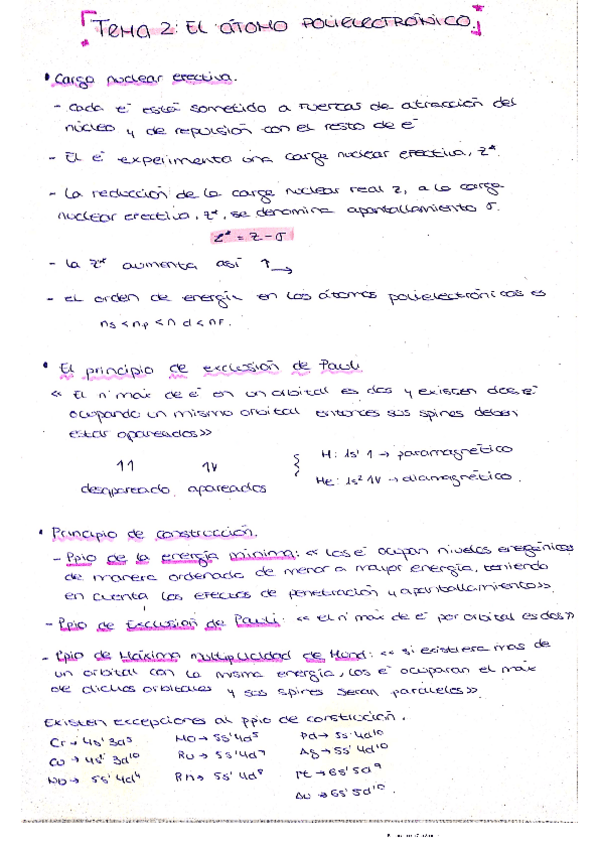 TEMA 2: EL ÁTOMO POLIELECTRÓNICO
• Carga nuclear efectiva.
- cada e⁻ está sometido a fuerzas de atracción del
núcleo y de repulsión con el resto de e⁻
- El e⁻ experimenta una carga nuclear efectiva, Z*.
- La reducción de la carga nuclear real z, a la carga
nuclear efectiva, z*, se denomina apantallamiento σ.
Z* = Z - σ
- la Z* aumenta así ↑→
- el orden de energía en los átomos polielectrónicos es
ns < np < nd < nf.
• El principio de exclusión de Pauli
« El nº max de e⁻ en un orbital es dos y existen dos e⁻
ocupando un mismo orbital entonces sus spines deben
estar apareados»
11 1V
desapareado apareados
H: 1s¹ 1 → paramagnético
He: 1s² 1V → diamagnético.
• Principio de construcción.
- Ppio de la energía mínima: « Los e⁻ ocupan niveles energéticos
de manera ordenada de menor a mayor energía, teniendo
en cuenta los efectos de penetración y apantallamiento».
- Ppio de Exclusión de Pauli: « el nº max de e⁻ por orbital es dos»
- Ppio de Máxima multiplicidad de Hund: « si existiera mas de
un orbital con la misma energía, los e⁻ ocuparan el max
de dichos orbitales y sus spines seran paralelos».
Existen excepciones al ppio de construcción.
Cr → 4s¹ 3d⁵ Mo → 5s¹ 4d⁵ Pd → 5s 4d¹⁰
Cu → 4s¹ 3d¹⁰ Ru → 5s¹ 4d⁷ Ag → 5s¹ 4d¹⁰
Nb → 5s¹ 4d⁴ Rh → 5s¹ 4d⁸ Pt → 6s¹ 5d⁹
Au → 6s¹ 5d¹⁰.